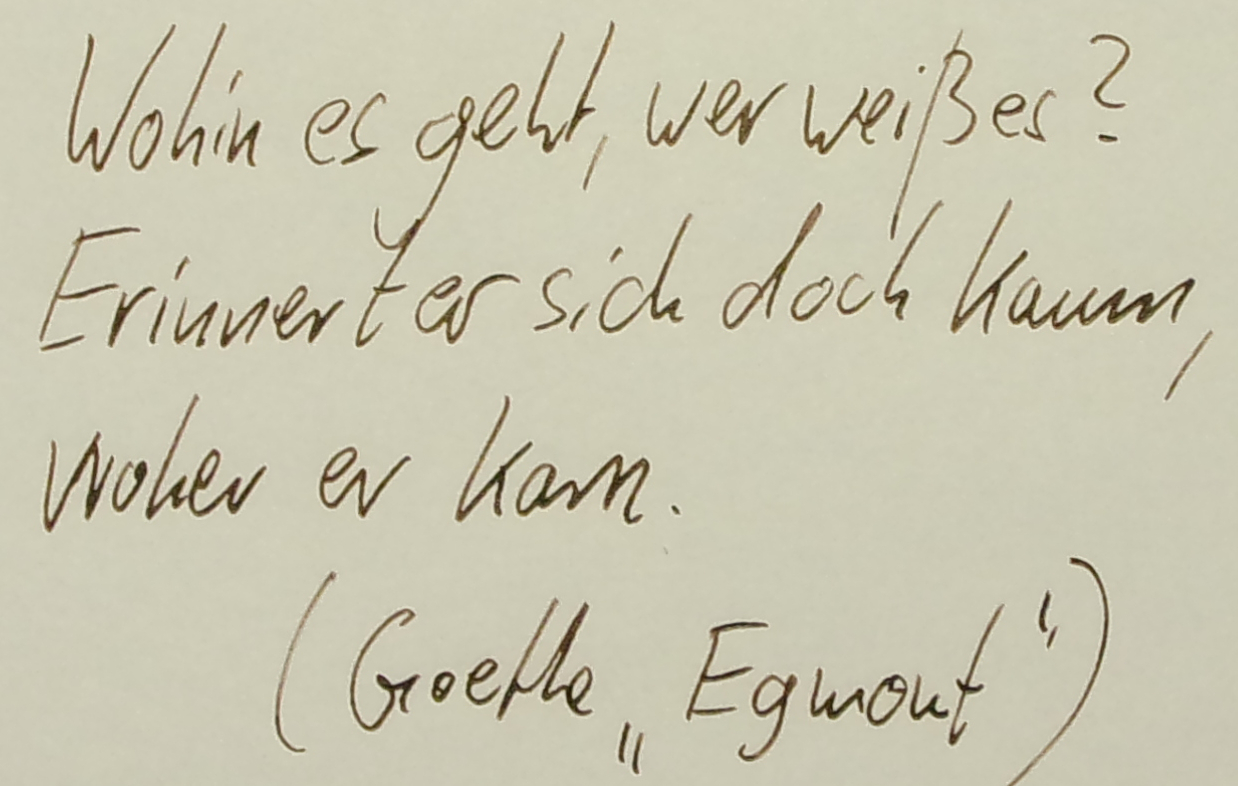 Wohin es geht, wer weiß es?
Erinnert er sich doch kaum,
woher er kam.
(Goethe „Egmont“)